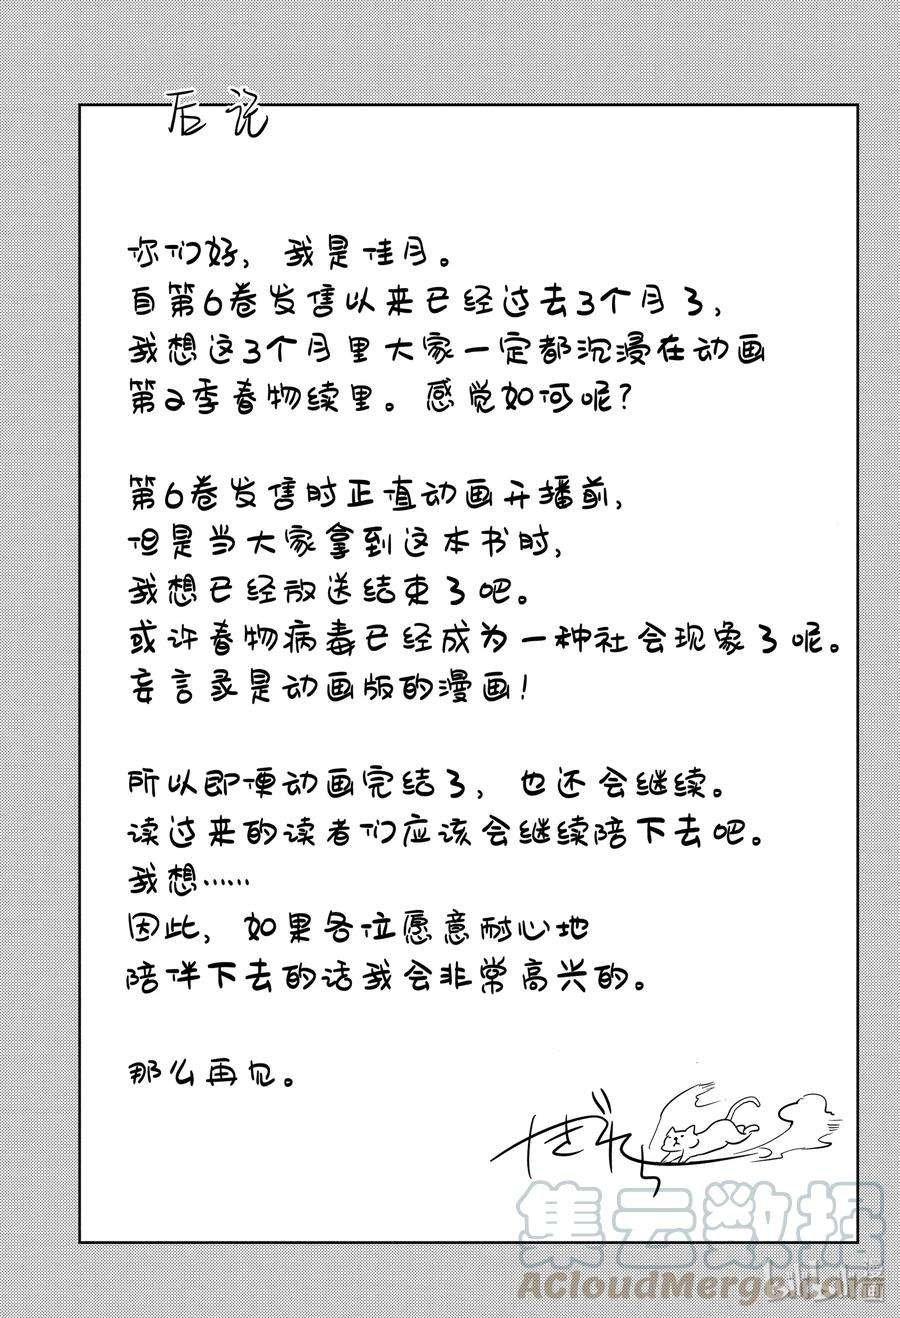 后记
你们好，我是佳月。
自第6卷发售以来已经过去3个月了，
我想这3个月里大家一定都沉浸在动画
第2季春物续里。感觉如何呢？
第6卷发售时正值动画开播前，
但是当大家拿到这本书时，
我想已经放送结束了吧。
或许春物病毒已经成为一种社会现象了呢。
妄言录是动画版的漫画！
所以即便动画完结了，也还会继续。
读过来的读者们应该会继续陪下去吧。
我想……
因此，如果各位愿意耐心地
陪伴下去的话我会非常高兴的。
那么再见。
集云数据
ACloudMerge.com